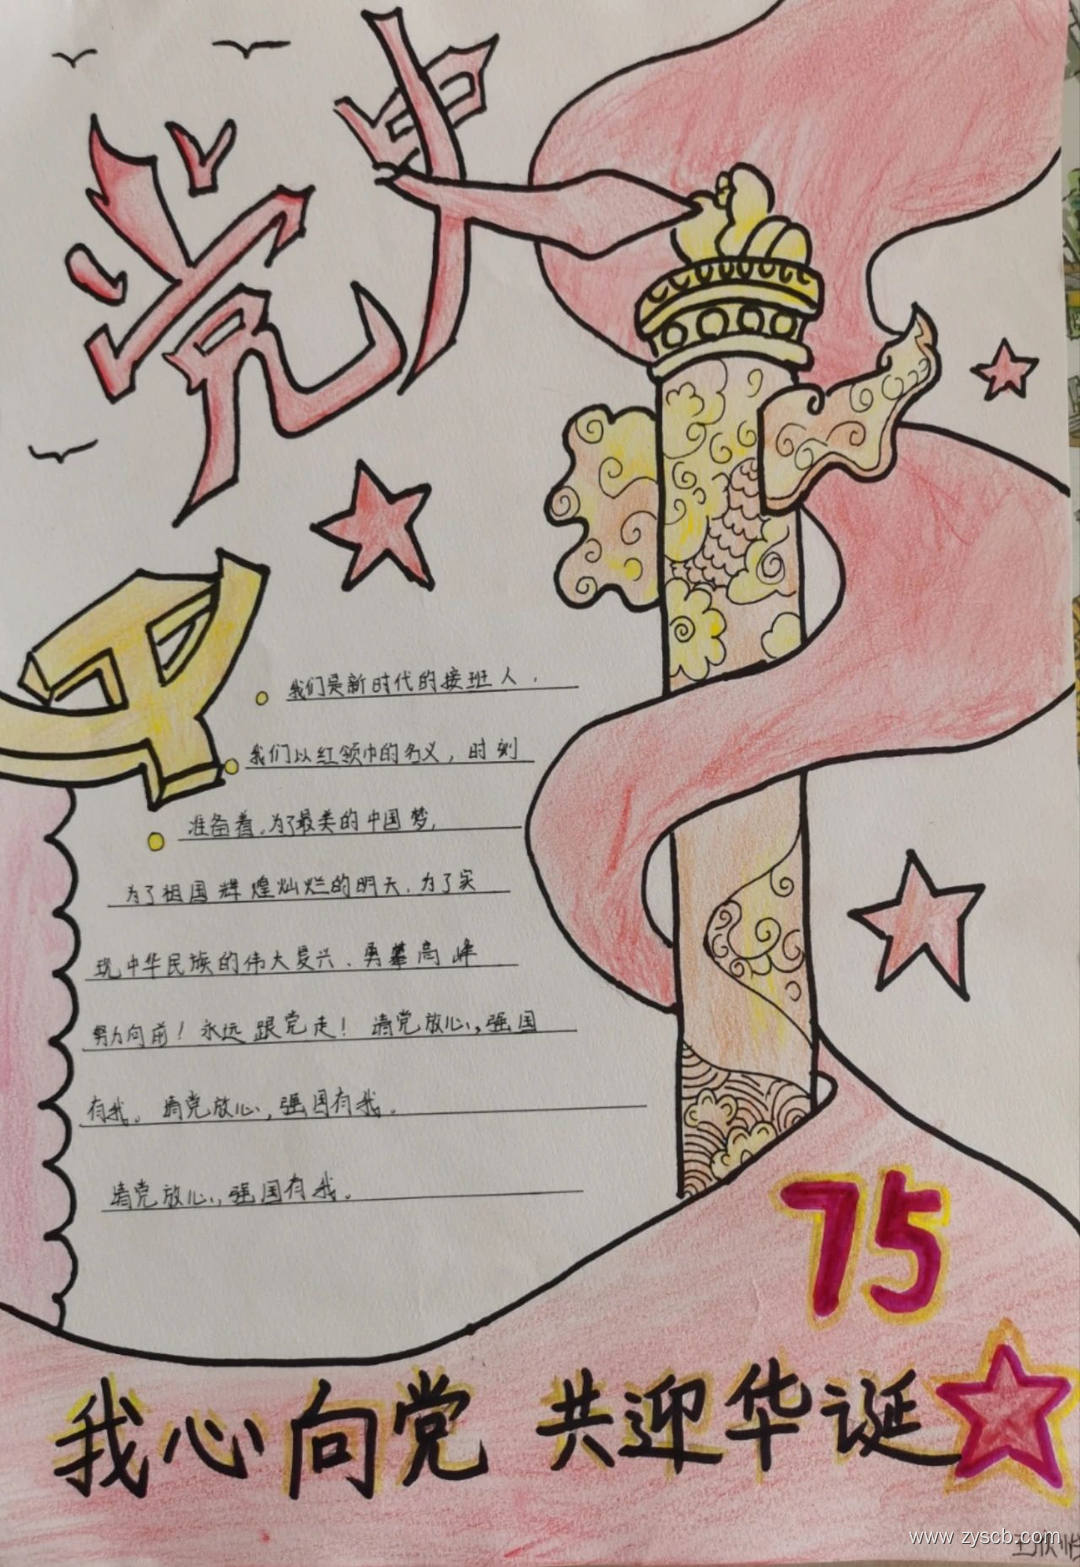 党史
我们是新时代的接班人，
我们以红领巾的名义，时刻
准备着，为了最美的中国梦，
为了祖国辉煌灿烂的明天，为了实
现中华民族的伟大复兴，勇攀高峰
努力向前！永远跟党走！请党放心，强国
有我。请党放心，强国有我。
请党放心，强国有我。
75
我心向党 共迎华诞
www.zyscb.com